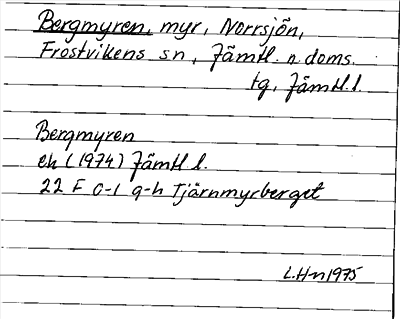 Bergmyren, myr, Norrsjön,
Frostvikens sn, Jämtl. n. doms.
tg, Jämtl.l.
Bergmyren
ek (1974) Jämtl l.
22 F c-l g-h Tjärnmyrberget
L.Hn1975